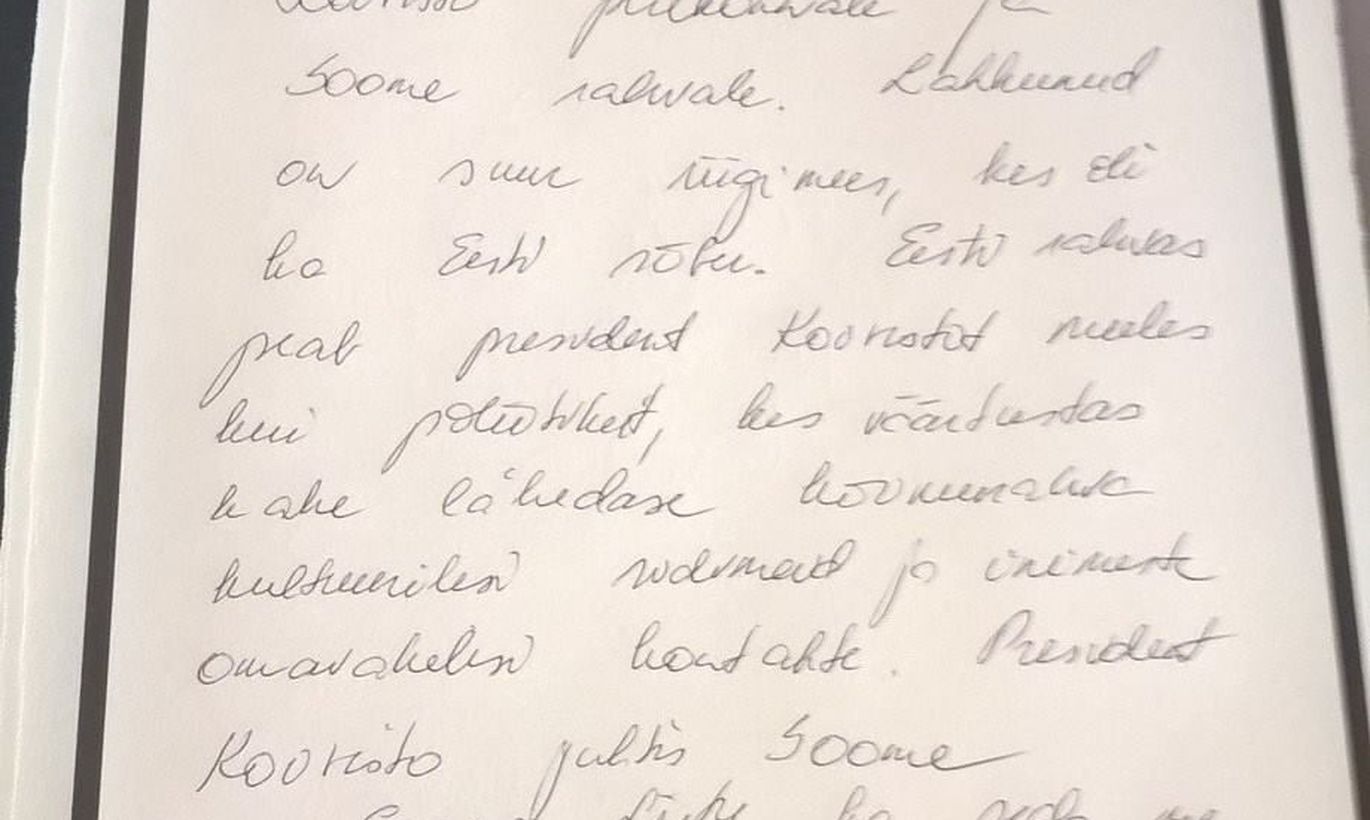 Koivisto perekonnale ja
Soome rahvale. Lahkunud
on suur riigimees, kes oli
ka Eesti sõber. Eesti rahvas
peab president Koivistot meeles
kui poliitikut, kes väärtustas
kahe lähedase hõimurahva
kultuurilisi sidemeid ja inimeste
omavahelisi kontakte. President
Koivisto juhtis Soome
ka seda